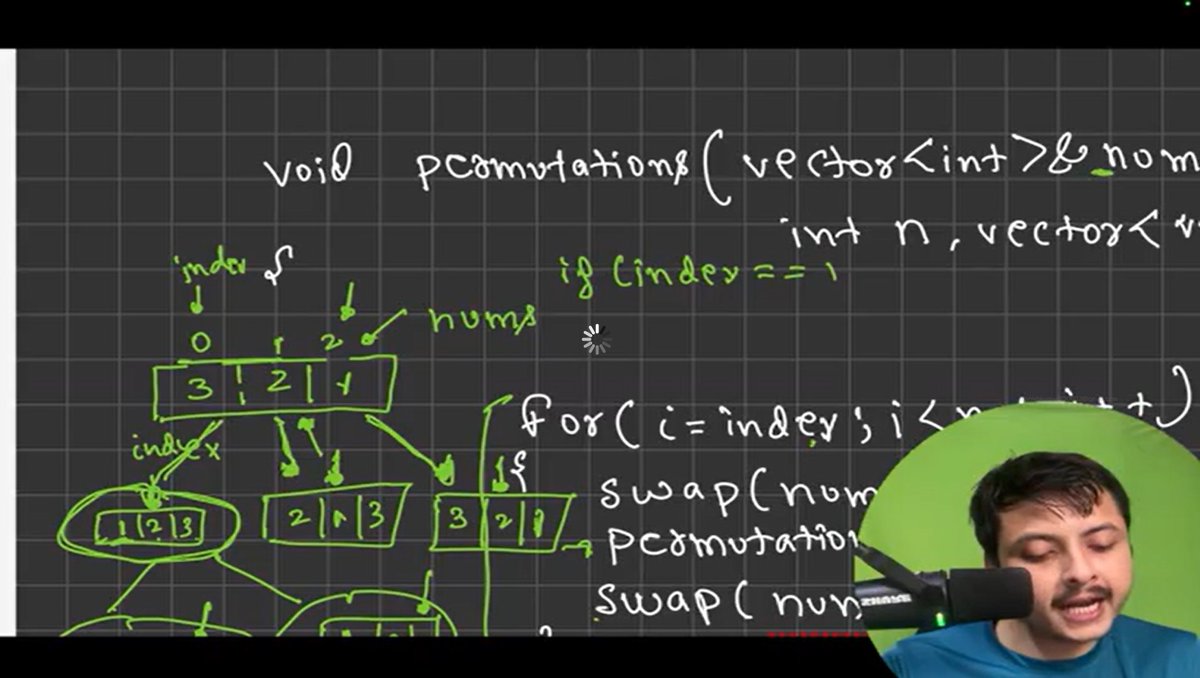 void permutations(vector<int>& nom
int n, vector<
index {
if (index ==
nums
0 1 2
3 2 1
for( i = index ; i <
index
{
1 2 3
2 1 3
3 2 1
swap( num
permutation
swap( num